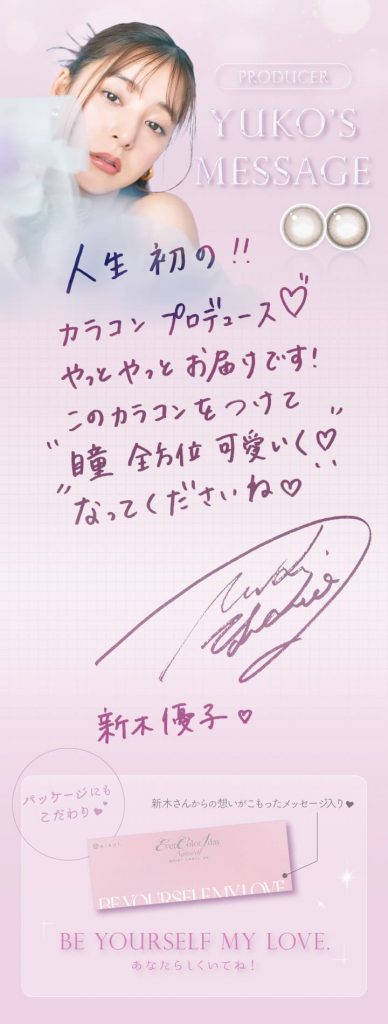 PRODUCER
YUKO'S
MESSAGE
人生 初の!!
カラコン プロデュース♡
やっと やっと お届けです!
このカラコンを つけて
"瞳 全方位 可愛いく♡"
"なってくださいね♡
新木優子♡
パッケージにも
こだわり♥
新木さんからの想いがこもったメッセージ入り♥
EverColor1day
Natural
MOIST LABEL UV
BE YOURSELF MY LOVE
BE YOURSELF MY LOVE.
あなたらしくいてね!